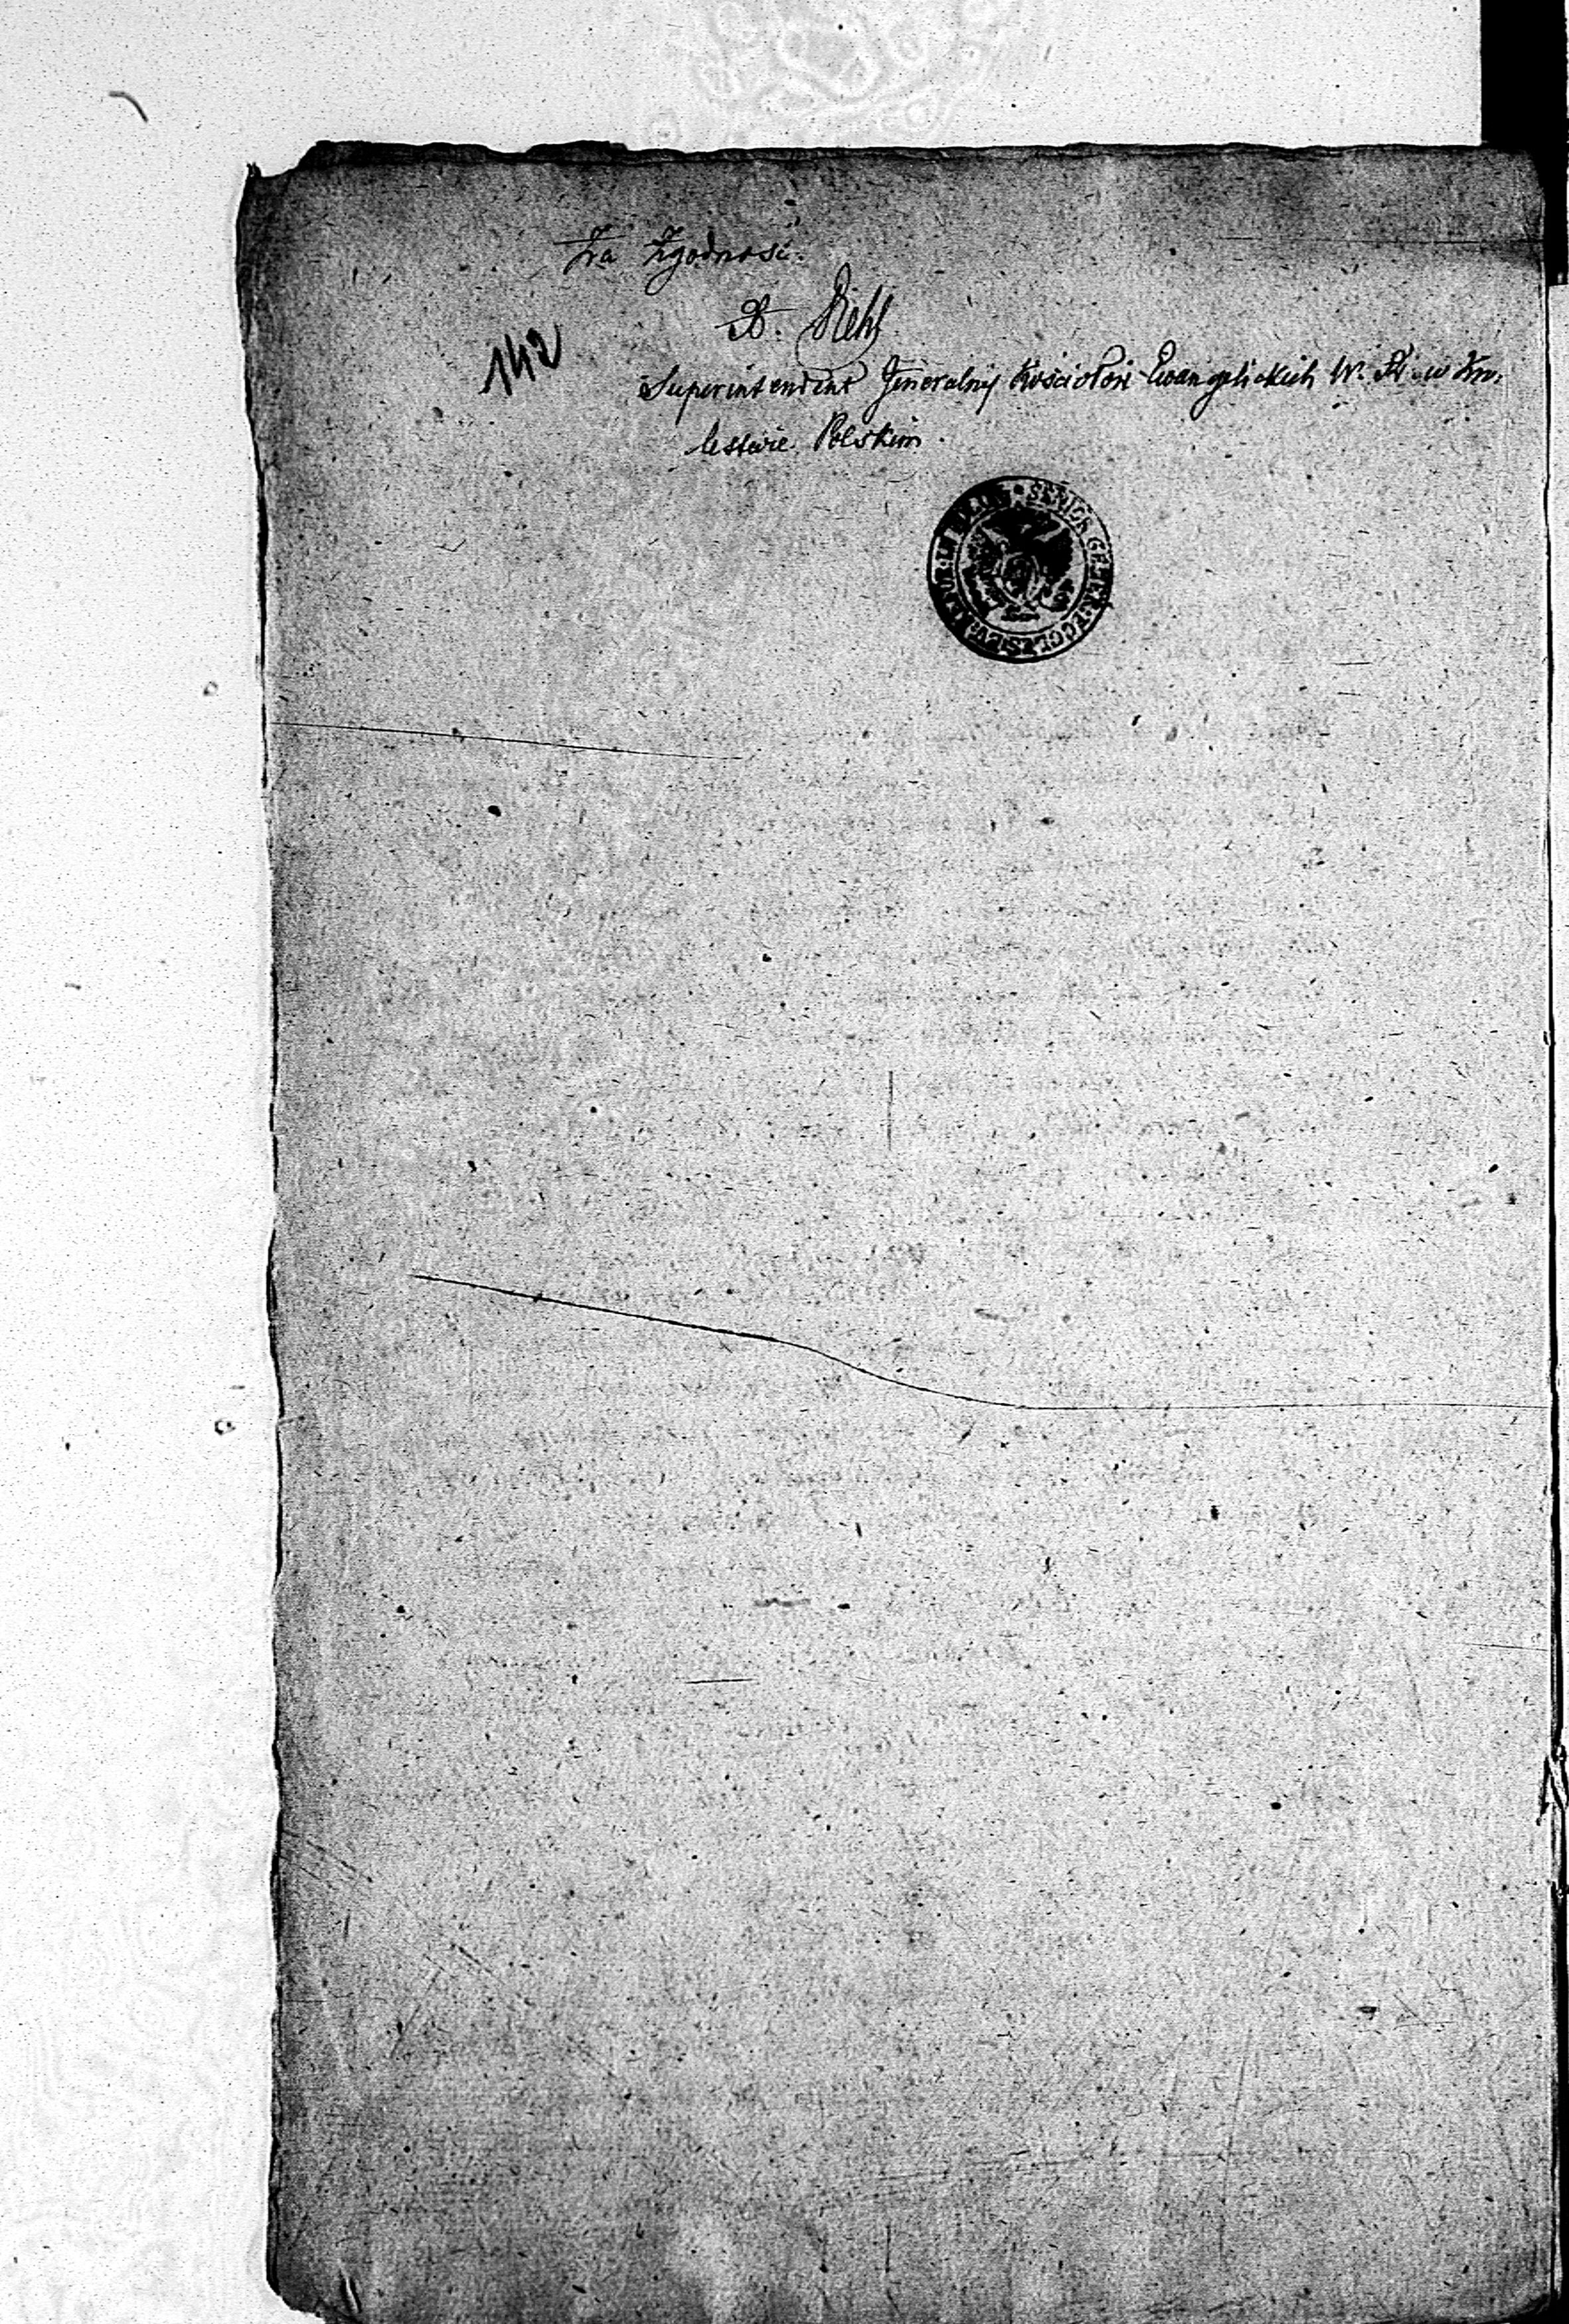 Za Zgodność.
K. Diehl
142
Superintendent Generalny Kościołów Ewangelickich W. R. w Kró-
lestwie Polskim.
SENIOR GENER. ECCLES. EV.